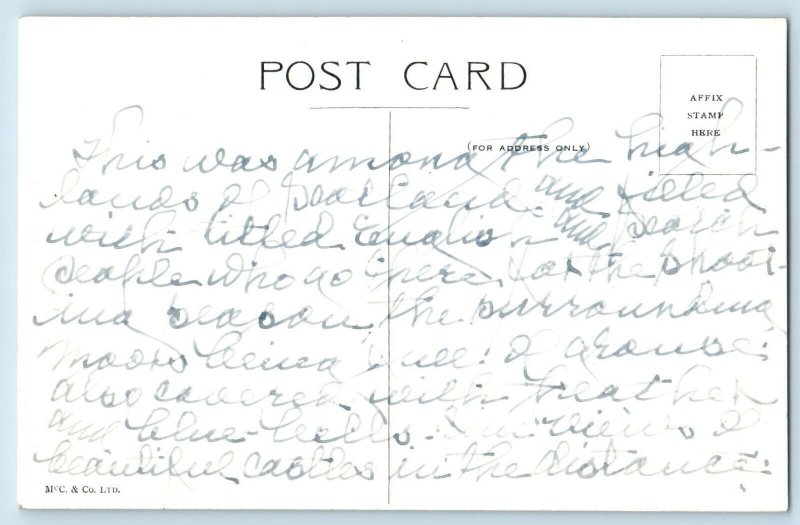 POST CARD
AFFIX
STAMP
HERE
(FOR ADDRESS ONLY)
This was among the high-
lands of Scotland and filled
with titled English and Scotch
people who go there for the shoot-
ing season, the surrounding
moors being full of grouse;
also covered with heather
and blue-bells. Fine views of
beautiful castles in the distance.
McC. & Co. LTD.